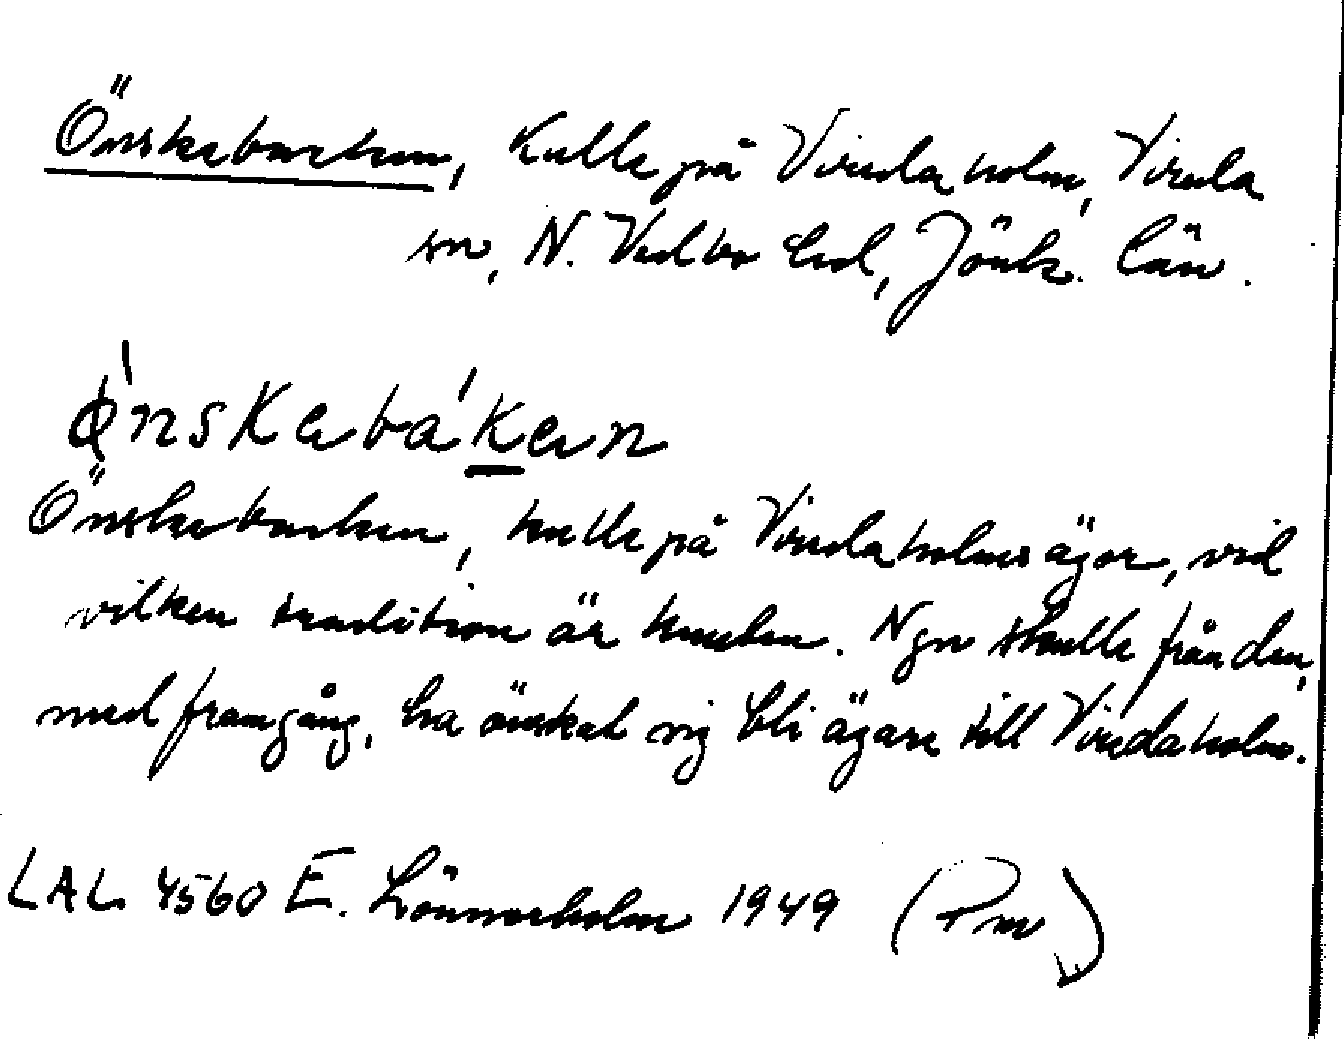 Önskebacken, kulle på Vireda holm, Vireda
sn, N. Vedbo hd, Jönk. län.
ǫ̈́nskebákean
Önskebacken, kulle på Viredaholms ägor, vid
vilken tradition är bunden. Ngn skulle från den,
med framgång, ha önskat sig bli ägare till Viredaholm.
LAL 4560 E. Lönnerholm 1949 (Pm)